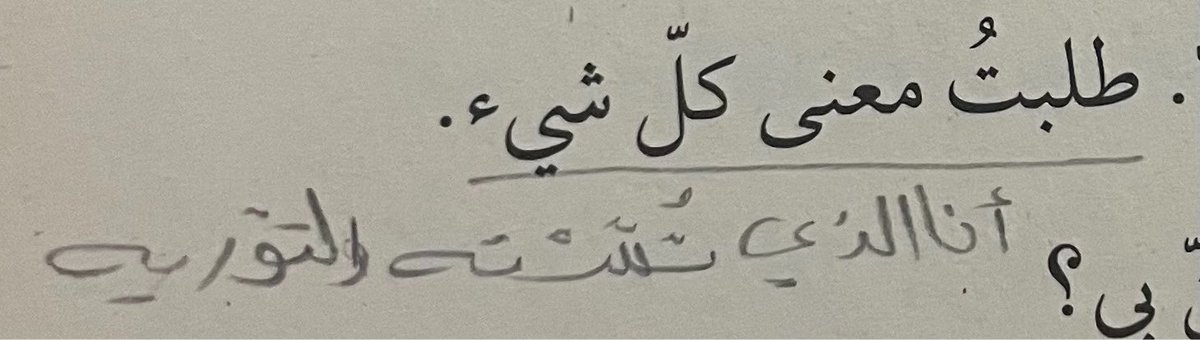 . طلبتُ معنى كلّ شيء.
أنا الذي تُشتّته التوريه
بي؟